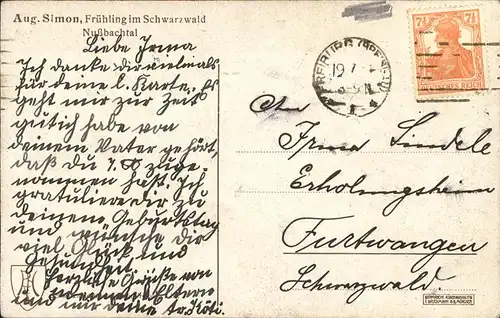 Aug. Simon, Frühling im Schwarzwald
Nußbachtal
Liebe Irma
Ich danke dir vielmals
für deine l. Karte. Es
geht mir zur Zeit
gut ich habe von
deinem Vater gehört,
daß du 7 zuge-
nommen hast. Ich
gratuliere dir zu
deinem Geburtstag
und wünsche dir
viel Glück und
Gesundheit
herzliche Grüße von
meinen Eltern
und mir deine
FREIBURG (BREISGAU)
19
8-9 N
7½ 7½
DEUTSCHES REICH
An
Irma Lindele
Erholungsheim
Furtwangen
Schwarzwald.